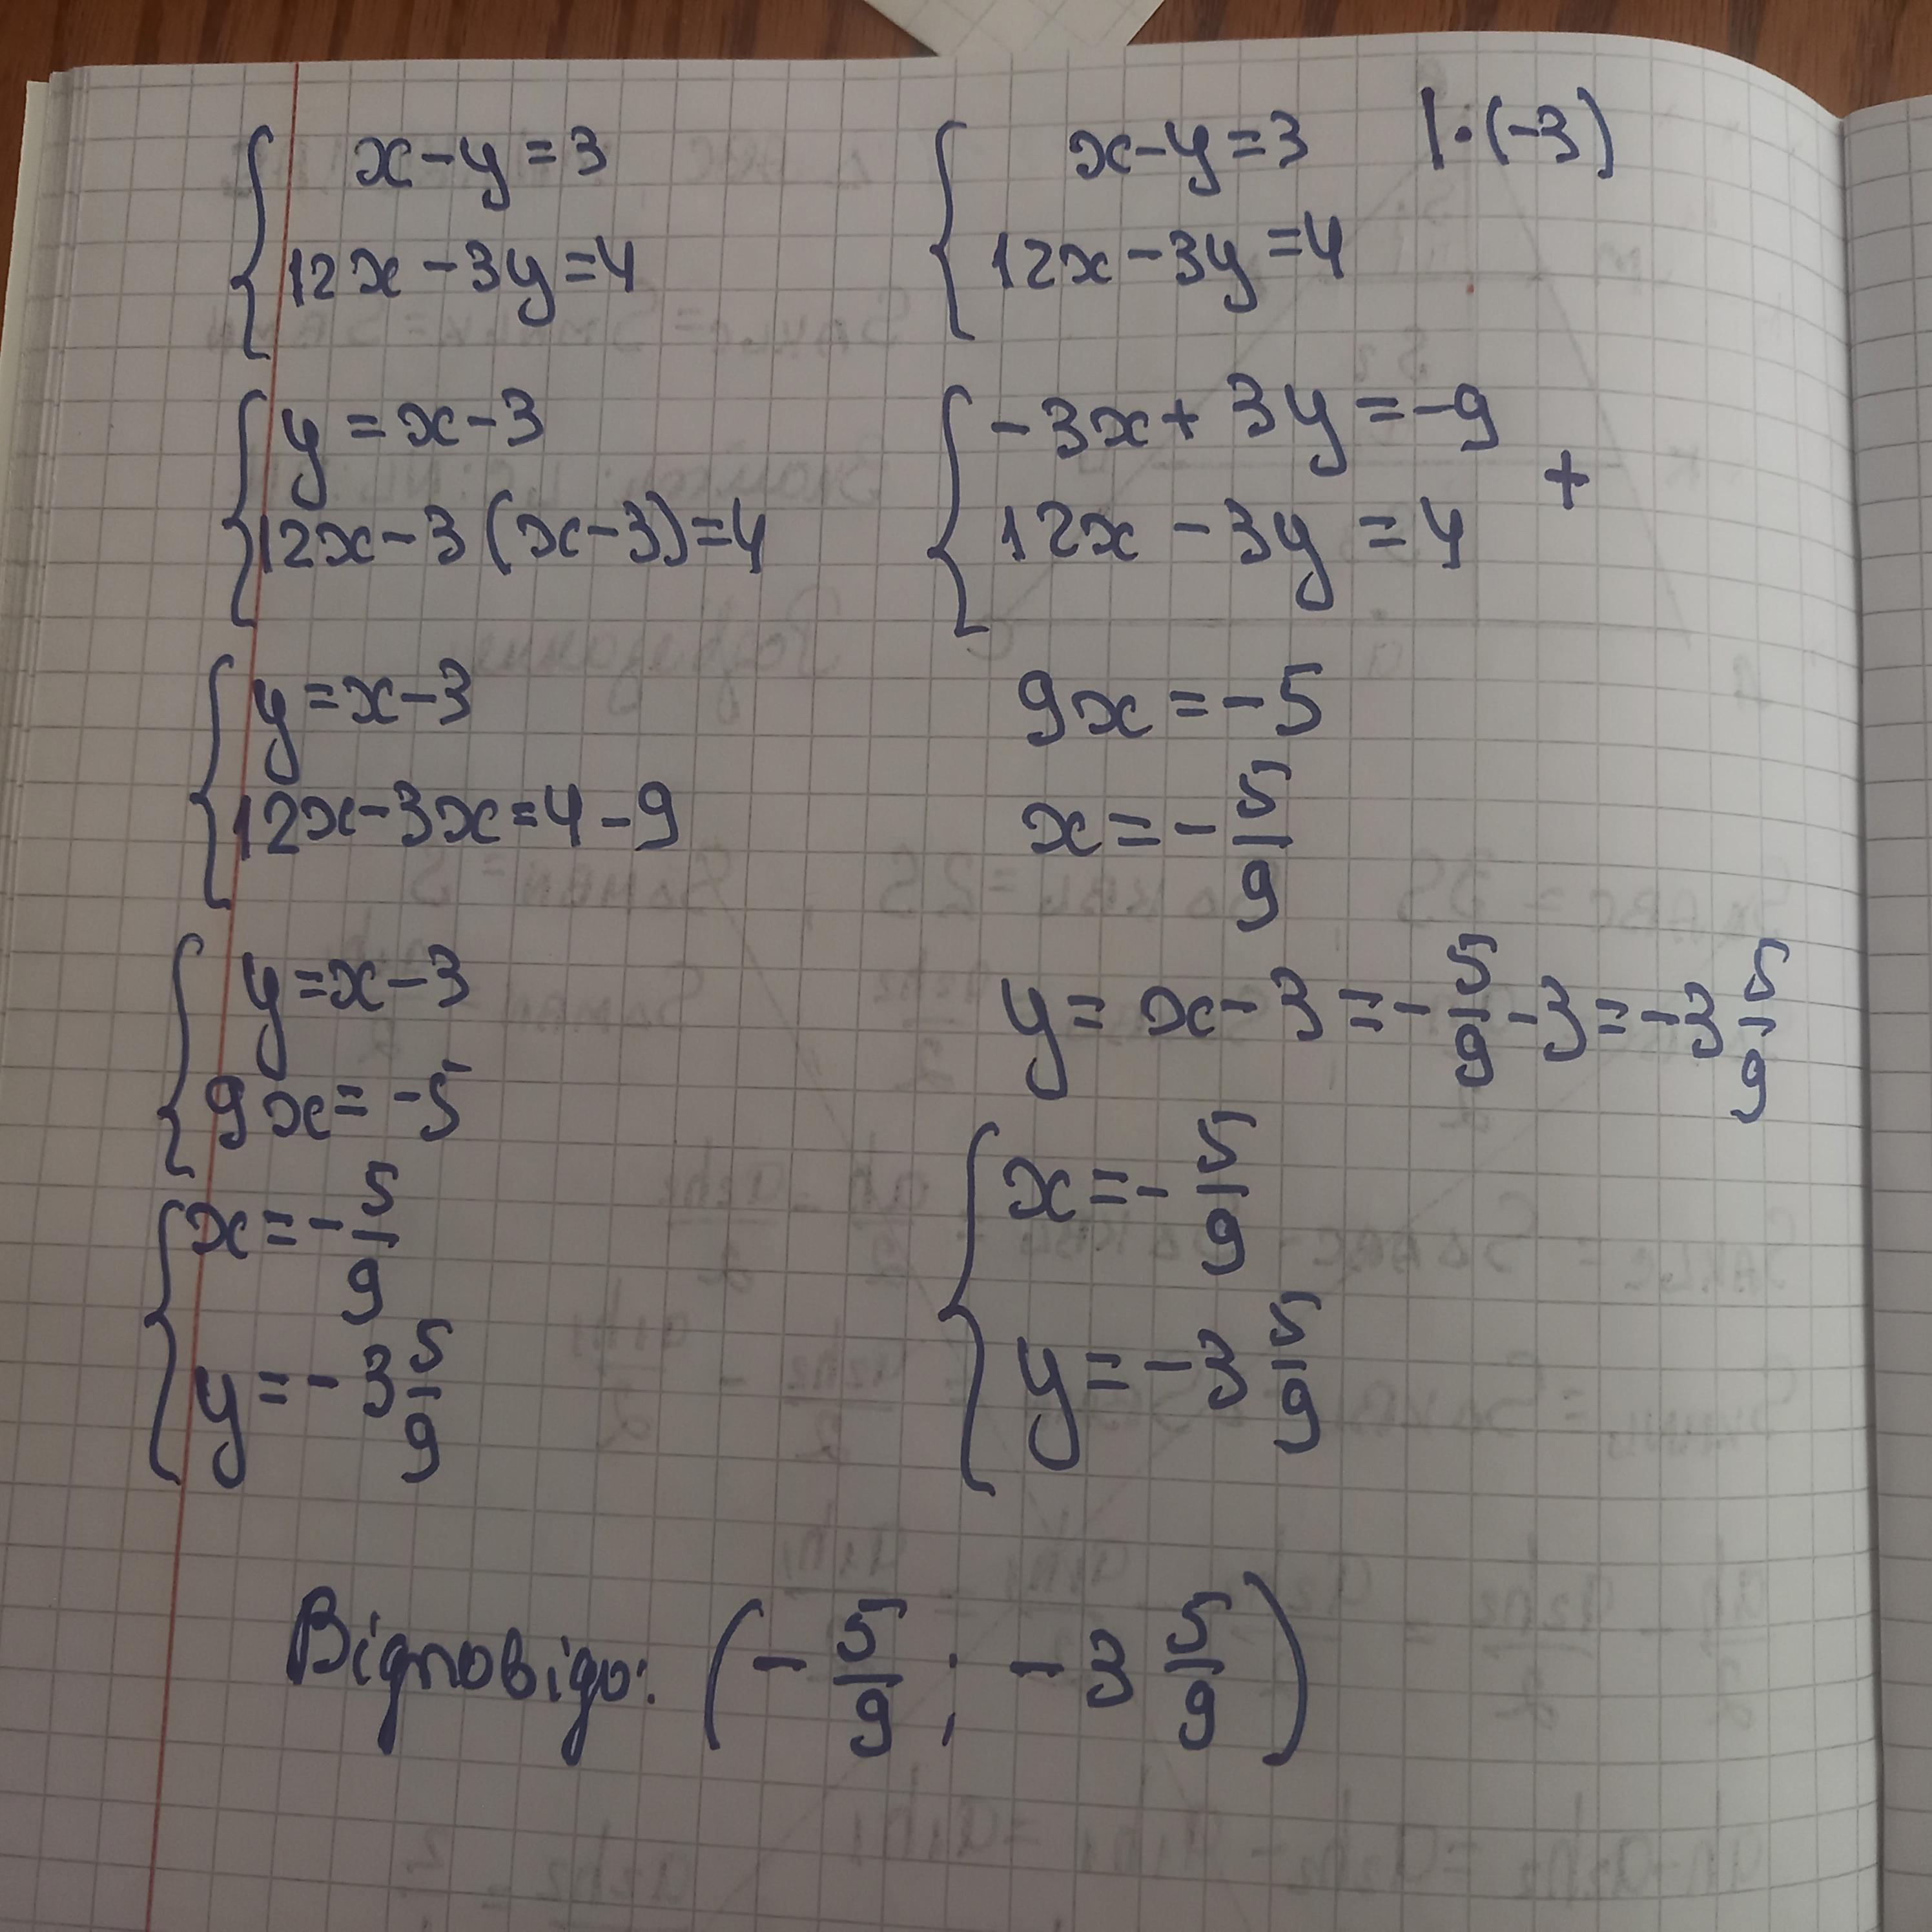 x-y=3
12x-3y=4
y=x-3
12x-3(x-3)=4
y=x-3
12x-3x=4-9
y=x-3
9x=-5
x=-5/9
y=-3 5/9
x-y=3 |·(-3)
12x-3y=4
-3x+3y=-9
+
12x-3y=4
9x=-5
x=-5/9
y=x-3=-5/9-3=-3 5/9
x=-5/9
y=-3 5/9
Відповідь: (-5/9; -3 5/9)